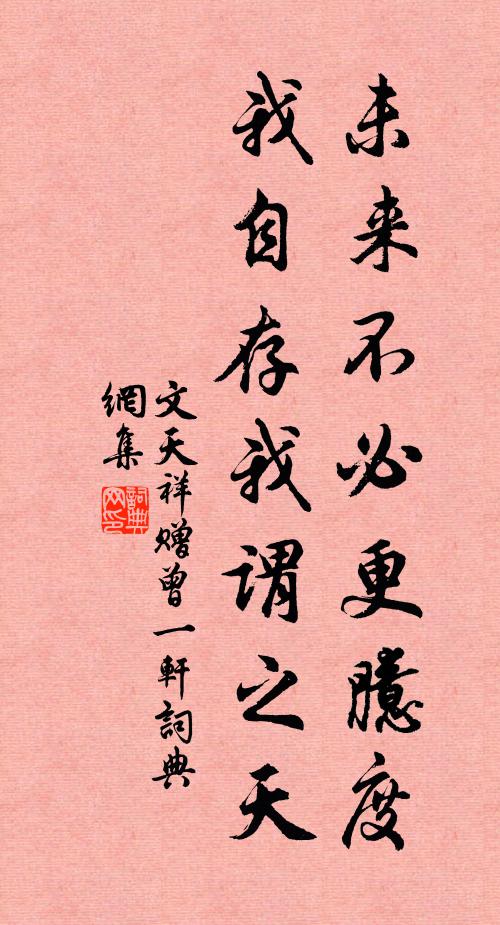 未来不必更臆度
我自存我謂之天
文天祥赠曾一軒詞典
網集
詞典
网印